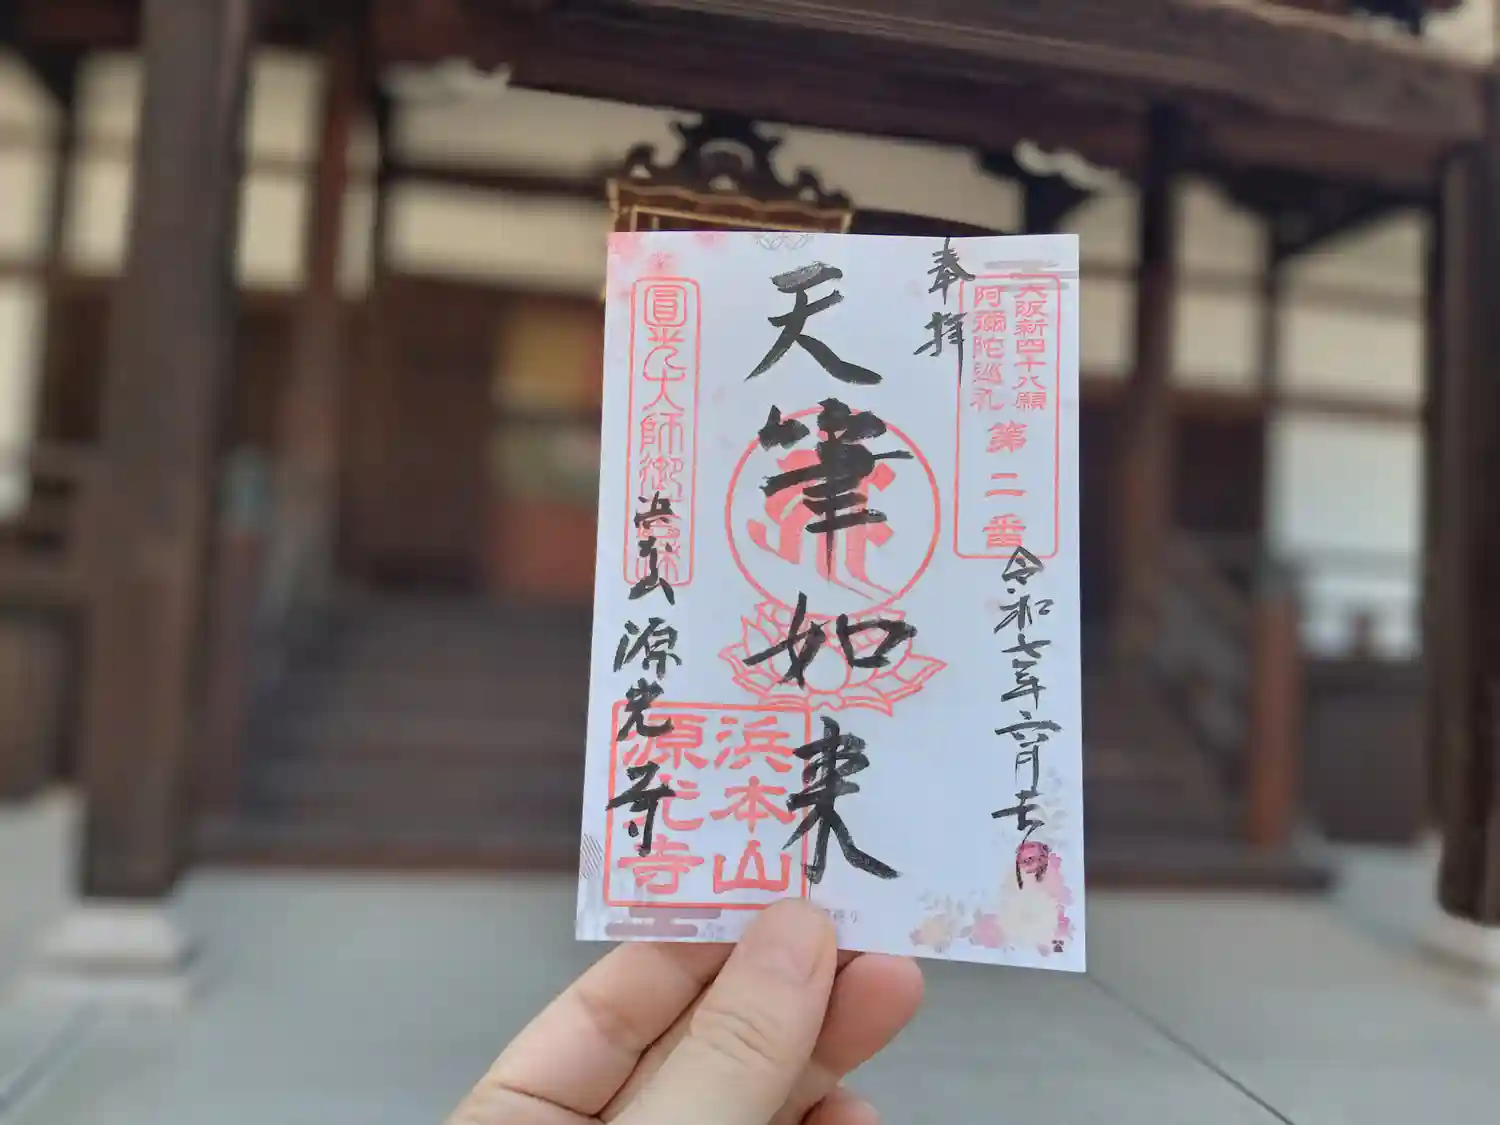 奉拝
大阪新四十八願
阿彌陀巡礼
第二番
令和七年六月廿一日
天筆如来
圓光大師御霊跡
浜本山
源光寺
浜本山
源光寺